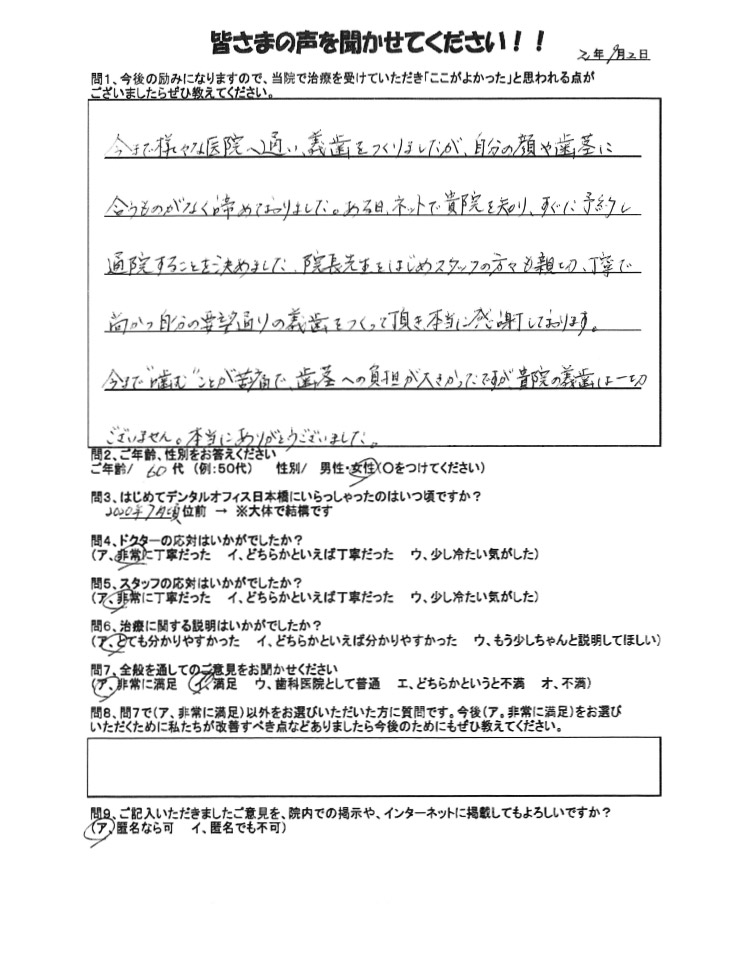 皆さまの声を聞かせてください！！
2年9月2日
問1、今後の励みになりますので、当院で治療を受けていただき「ここがよかった」と思われる点が
ございましたらぜひ教えてください。
今まで様々な医院へ通い、義歯をつくりましたが、自分の顔や歯茎に
合うものがなく諦めておりました。ある日、ネットで貴院を知り、すぐに予約し
通院することを決めました。院長先生をはじめスタッフの方々も親切、丁寧で
尚かつ自分の要望通りの義歯をつくって頂き本当に感謝しております。
今まで"噛む"ことが苦痛で、歯茎への負担が大きかったですが貴院の義歯は一切
ございません。本当にありがとうございました。
問2、ご年齢、性別をお答えください
ご年齢/ 60代 （例：50代） 性別/ 男性・女性（〇をつけてください）
問3、はじめてデンタルオフィス日本橋にいらっしゃったのはいつ頃ですか？
2020年7月頃位前 → ※大体で結構です
問4、ドクターの応対はいかがでしたか？
（ア、非常に丁寧だった イ、どちらかといえば丁寧だった ウ、少し冷たい気がした）
問5、スタッフの応対はいかがでしたか？
（ア、非常に丁寧だった イ、どちらかといえば丁寧だった ウ、少し冷たい気がした）
問6、治療に関する説明はいかがでしたか？
（ア、とても分かりやすかった イ、どちらかといえば分かりやすかった ウ、もう少しちゃんと説明してほしい）
問7、全般を通してのご意見をお聞かせください
（ア、非常に満足 イ、満足 ウ、歯科医院として普通 エ、どちらかというと不満 オ、不満）
問8、問7で（ア、非常に満足）以外をお選びいただいた方に質問です。今後（ア。非常に満足）をお選び
いただくために私たちが改善すべき点などありましたら今後のためにもぜひ教えてください。
問9、ご記入いただきましたご意見を、院内での掲示や、インターネットに掲載してもよろしいですか？
（ア、匿名なら可 イ、匿名でも不可）